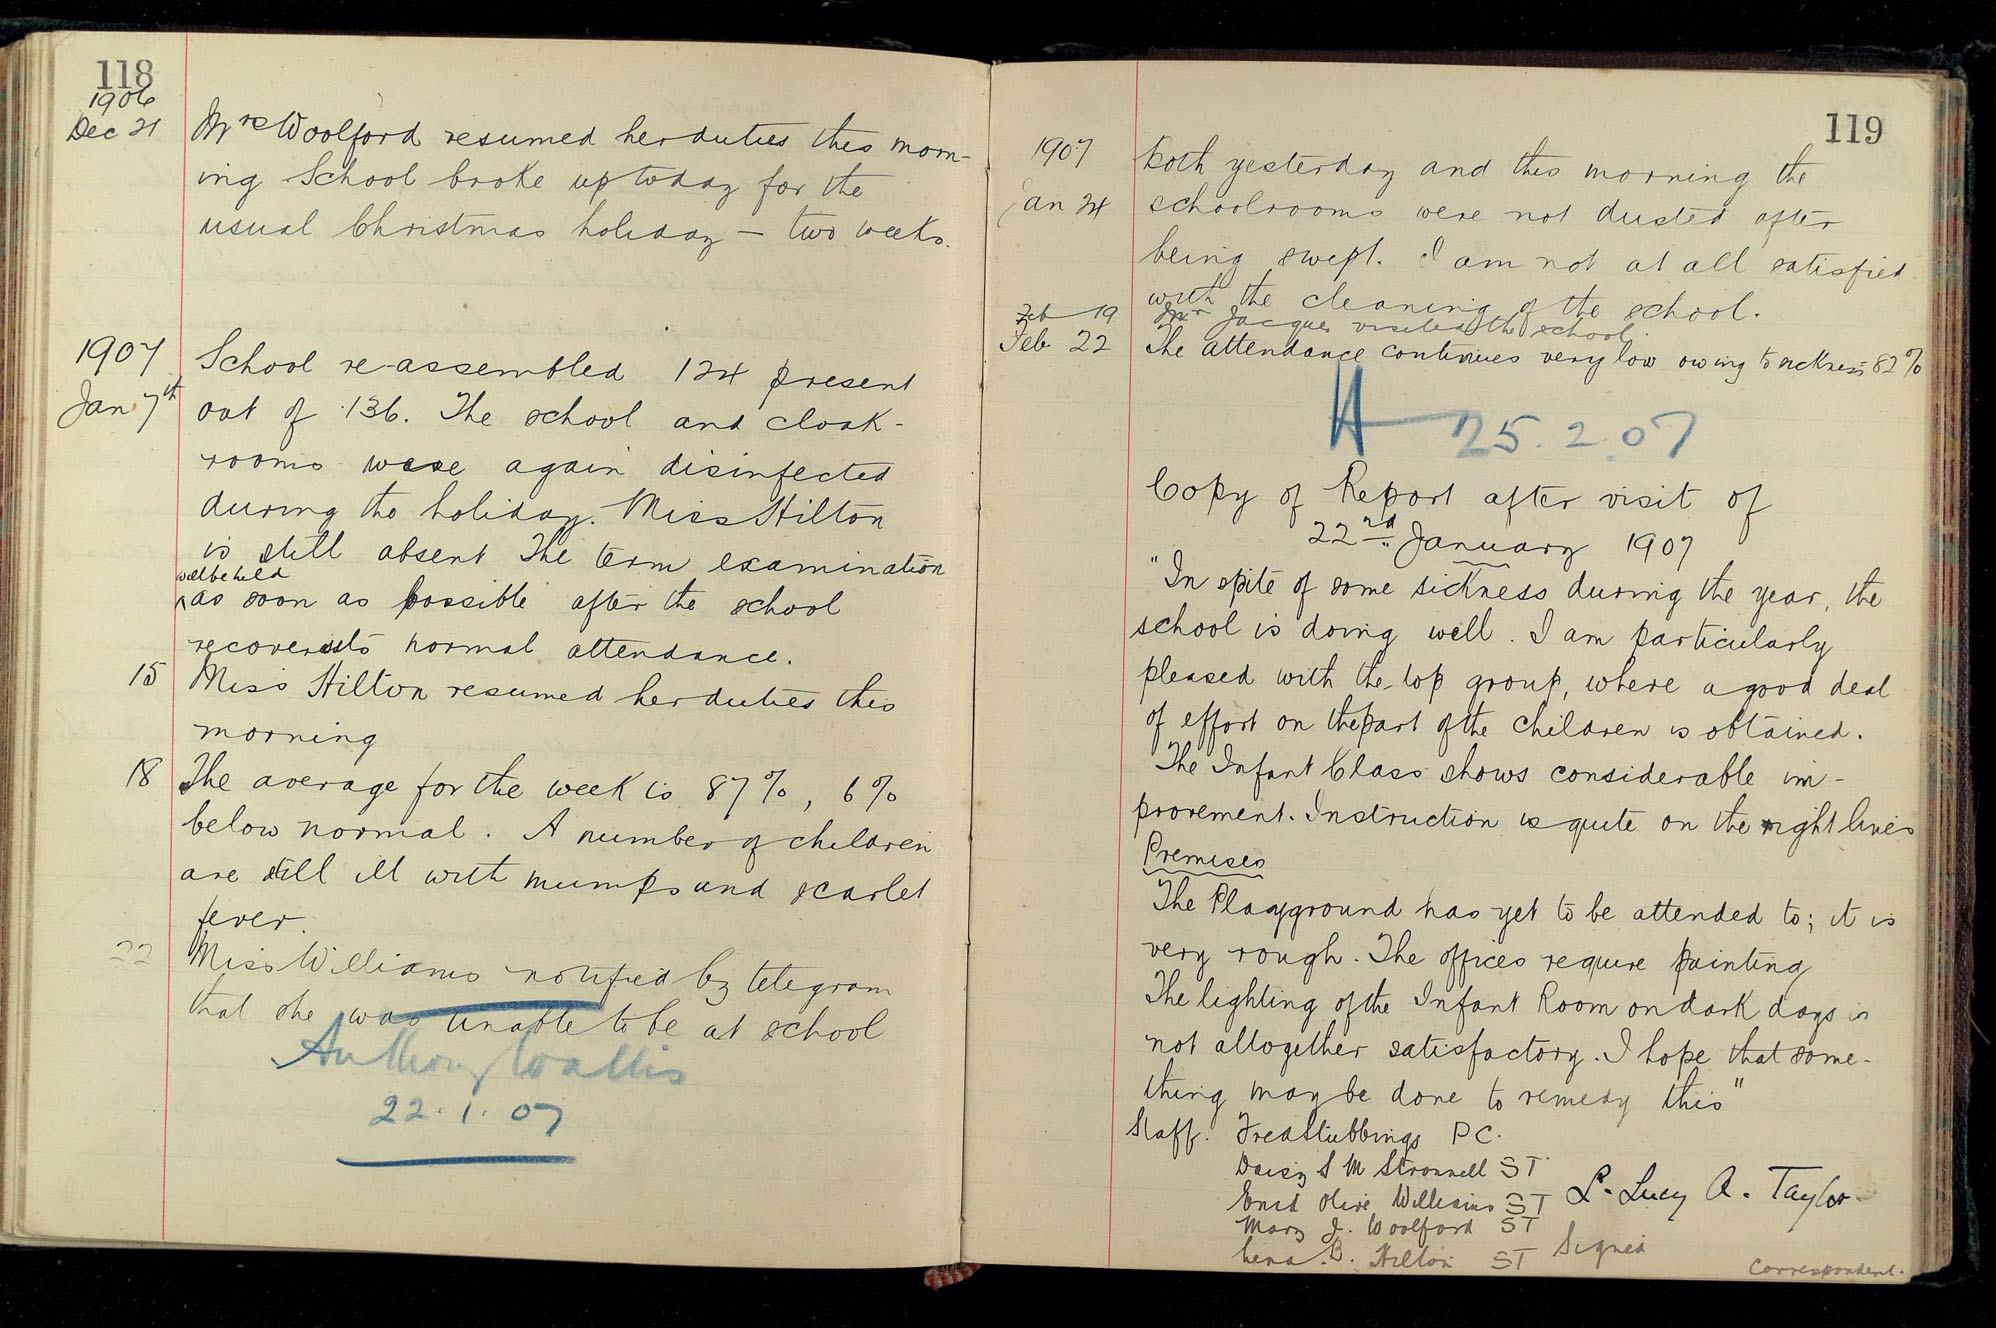 118
1906
Dec 21
Mrs Woolford resumed her duties this morn-
ing School broke up today for the
usual Christmas holiday – two weeks.
1907
Jan 7th
School re-assembled 124 present
out of 136. The school and cloak-
rooms were again disinfected
during the holiday. Miss Hilton
is still absent The term examination
will be held
as soon as possible after the school
recovers its normal attendance.
15 Miss Hilton resumed her duties this
morning
18 The average for the week is 87%, 6%
below normal. A number of children
are still ill with mumps and scarlet
fever.
22 Miss Williams notified by telegram
that she was unable to be at school
Anthony Wallis
22.1.07
119
1907
Jan 24
Both yesterday and this morning the
schoolrooms were not dusted after
being swept. I am not at all satisfied
with the cleaning of the school.
Feb 19 Mr Jacques visited the school.
Feb 22 The attendance continues very low owing to sickness 82%
25.2.07
Copy of Report after visit of
22nd January 1907
"In spite of some sickness during the year, the
school is doing well. I am particularly
pleased with the top group, where a good deal
of effort on the part of the children is obtained.
The Infant Class shows considerable im-
provement. Instruction is quite on the right lines
Premises
The Playground has yet to be attended to; it is
very rough. The offices require painting
The lighting of the Infant Room on dark days is
not altogether satisfactory. I hope that some-
thing may be done to remedy this"
Staff. Fred Stubbings P C.
Daisy S M Stronnell S T
Enid Olive Williams S T
L. Lucy A. Taylor
Mary J. Woolford S T
Lena B. Hilton S T
Signed
Correspondent.